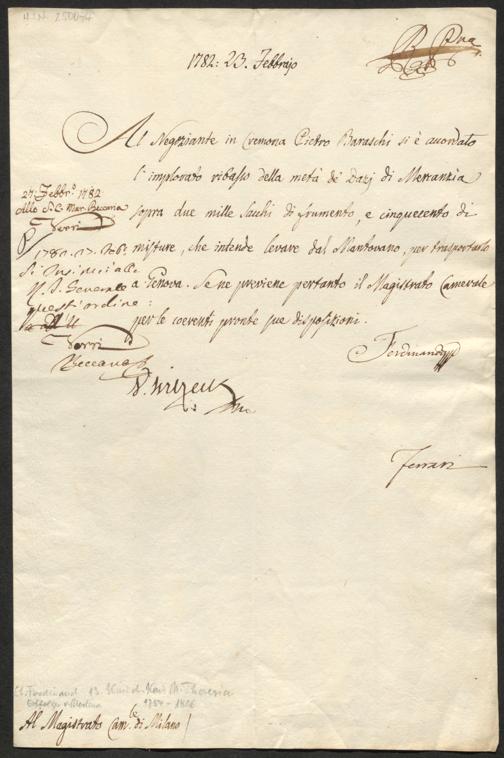 1782: 23. Febbrajo
Al Negoziante in Cremona Pietro Baraschi si è accordato
l'implorato ribasso della metà de' Dazj di Mercanzia
sopra due mille Sacchi di frumento, e cinquecento di
misture, che intende levare dal Mantovano, per trasportarlo
a Genova. Se ne previene pertanto il Magistrato Camerale
per le coerenti pronte sue disposizioni.
27. Febbro. 1782
Allo S. C. Mar. Beccaria
Verri
1782. 27. Feb.
Si
quest'ordine:
Verri
Beccaria
Ferdinando
V. Wilzeck
Ferrari
Eh. Ferdinand 13. Kind d. Kais. M. Theresia
1754 - 1806
Al Magistrato Cam.le di Milano